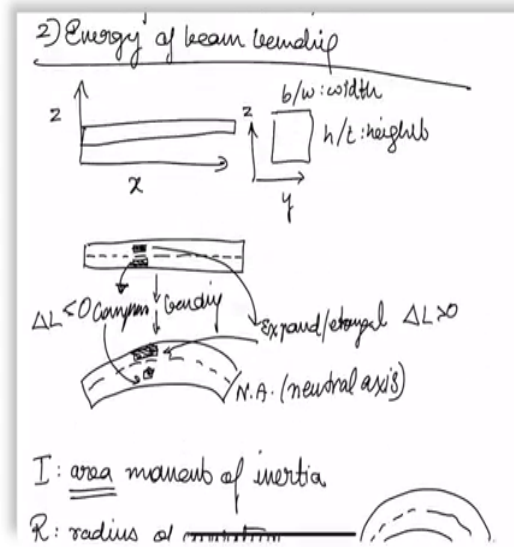 2) Energy of beam bending
z
x
b/w: width
z
h/t: height
y
ΔL<0
bending
Expand/ ΔL>0
N.A. (neutral axis)
I: area moment of inertia
R: radius of